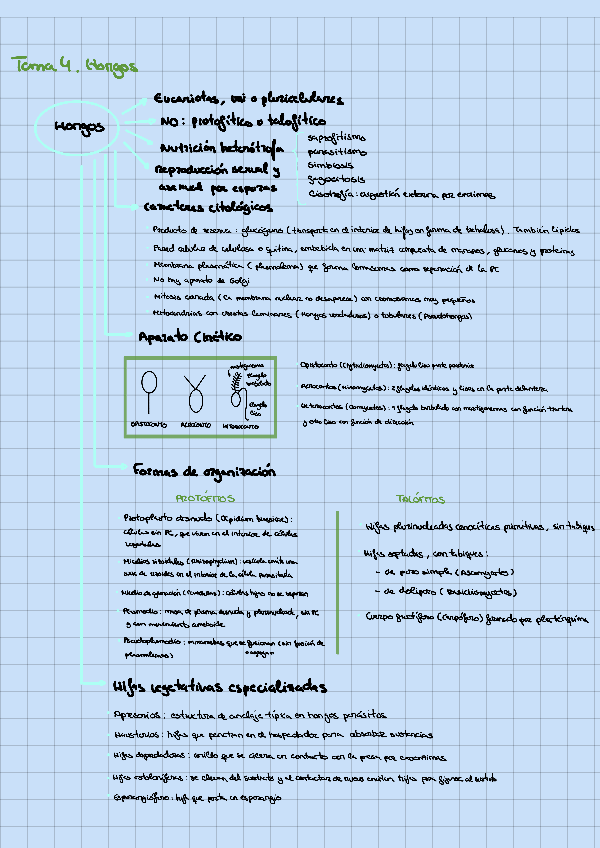 Tema 4. Hongos
Hongos
Eucariotas, uni o pluricelulares
NO: protofítico o talofítico
Nutrición heterótrofa
saprofitismo
parasitismo
simbiosis
fagocitosis
: digestión externa por enzimas
Reproducción sexual y
asexual por esporas
Caracteres citológicos
Producto de reserva: glucógeno (transporte en el interior de hifas en forma de trehalosa). También lípidos
Pared celular de celulosa o quitina, embebida en una matriz compuesta de manosas, glucanos y proteínas
Membrana plasmática (plasmalema) que forma lomasomas como separación de la PC
No hay aparato de Golgi
Mitosis cerrada (la membrana nuclear no desaparece) con cromosomas muy pequeños
Mitocondrias con crestas laminares (Hongos verdaderos) o tubulares (Pseudohongos)
Aparato Cinético
mastigonema
flagelo
barbulado
flagelo
liso
OPISTOCONTO
ACROCONTO
HETEROCONTO
Opistoconto (Chytridiomycetes): flagelo liso parte posterior
Acroconto : 2 flagelos idénticos y lisos en la parte delantera
Heteroconto (Oomycetes): 1 flagelo barbulado con mastigonemas con función tractora
y otro liso con función de dirección
Formas de organización
PROTÓFITOS
Protoplasto desnudo (Olpidium brassicae):
células sin PC, que viven en el interior de células
vegetales
Micelios rizoidales : vesícula emite una
serie de rizoides en el interior de la célula parasitada
células hijas no se separan
Plasmodio: masa de plasma desnuda y plurinucleada, sin PC
y con movimiento ameboide
Pseudoplasmodio: mixamebas que se fusionan (sin fusión de
plasmalemas)
se agregan
TALÓFITOS
Hifas plurinucleadas cenocíticas primitivas, sin tabiques
Hifas septadas, con tabiques:
- de poro simple (Ascomycetes)
- de dolíporo (Basidiomycetes)
Cuerpo fructífero (Carpóforo) formado por plecténquima
Hifas vegetativas especializadas
Apresorios: estructura de anclaje típica en hongos parásitos
Haustorios: hifas que penetran en el hospedador para absorber sustancias
Hifas depredadoras: anillo que se cierra en contacto con la presa por exoenzimas
Hifas estoloníferas: se elevan del sustrato y al contactar de nuevo emiten hifas para fijarse al sustrato
Esporangióforo: hifa que porta un esporangio